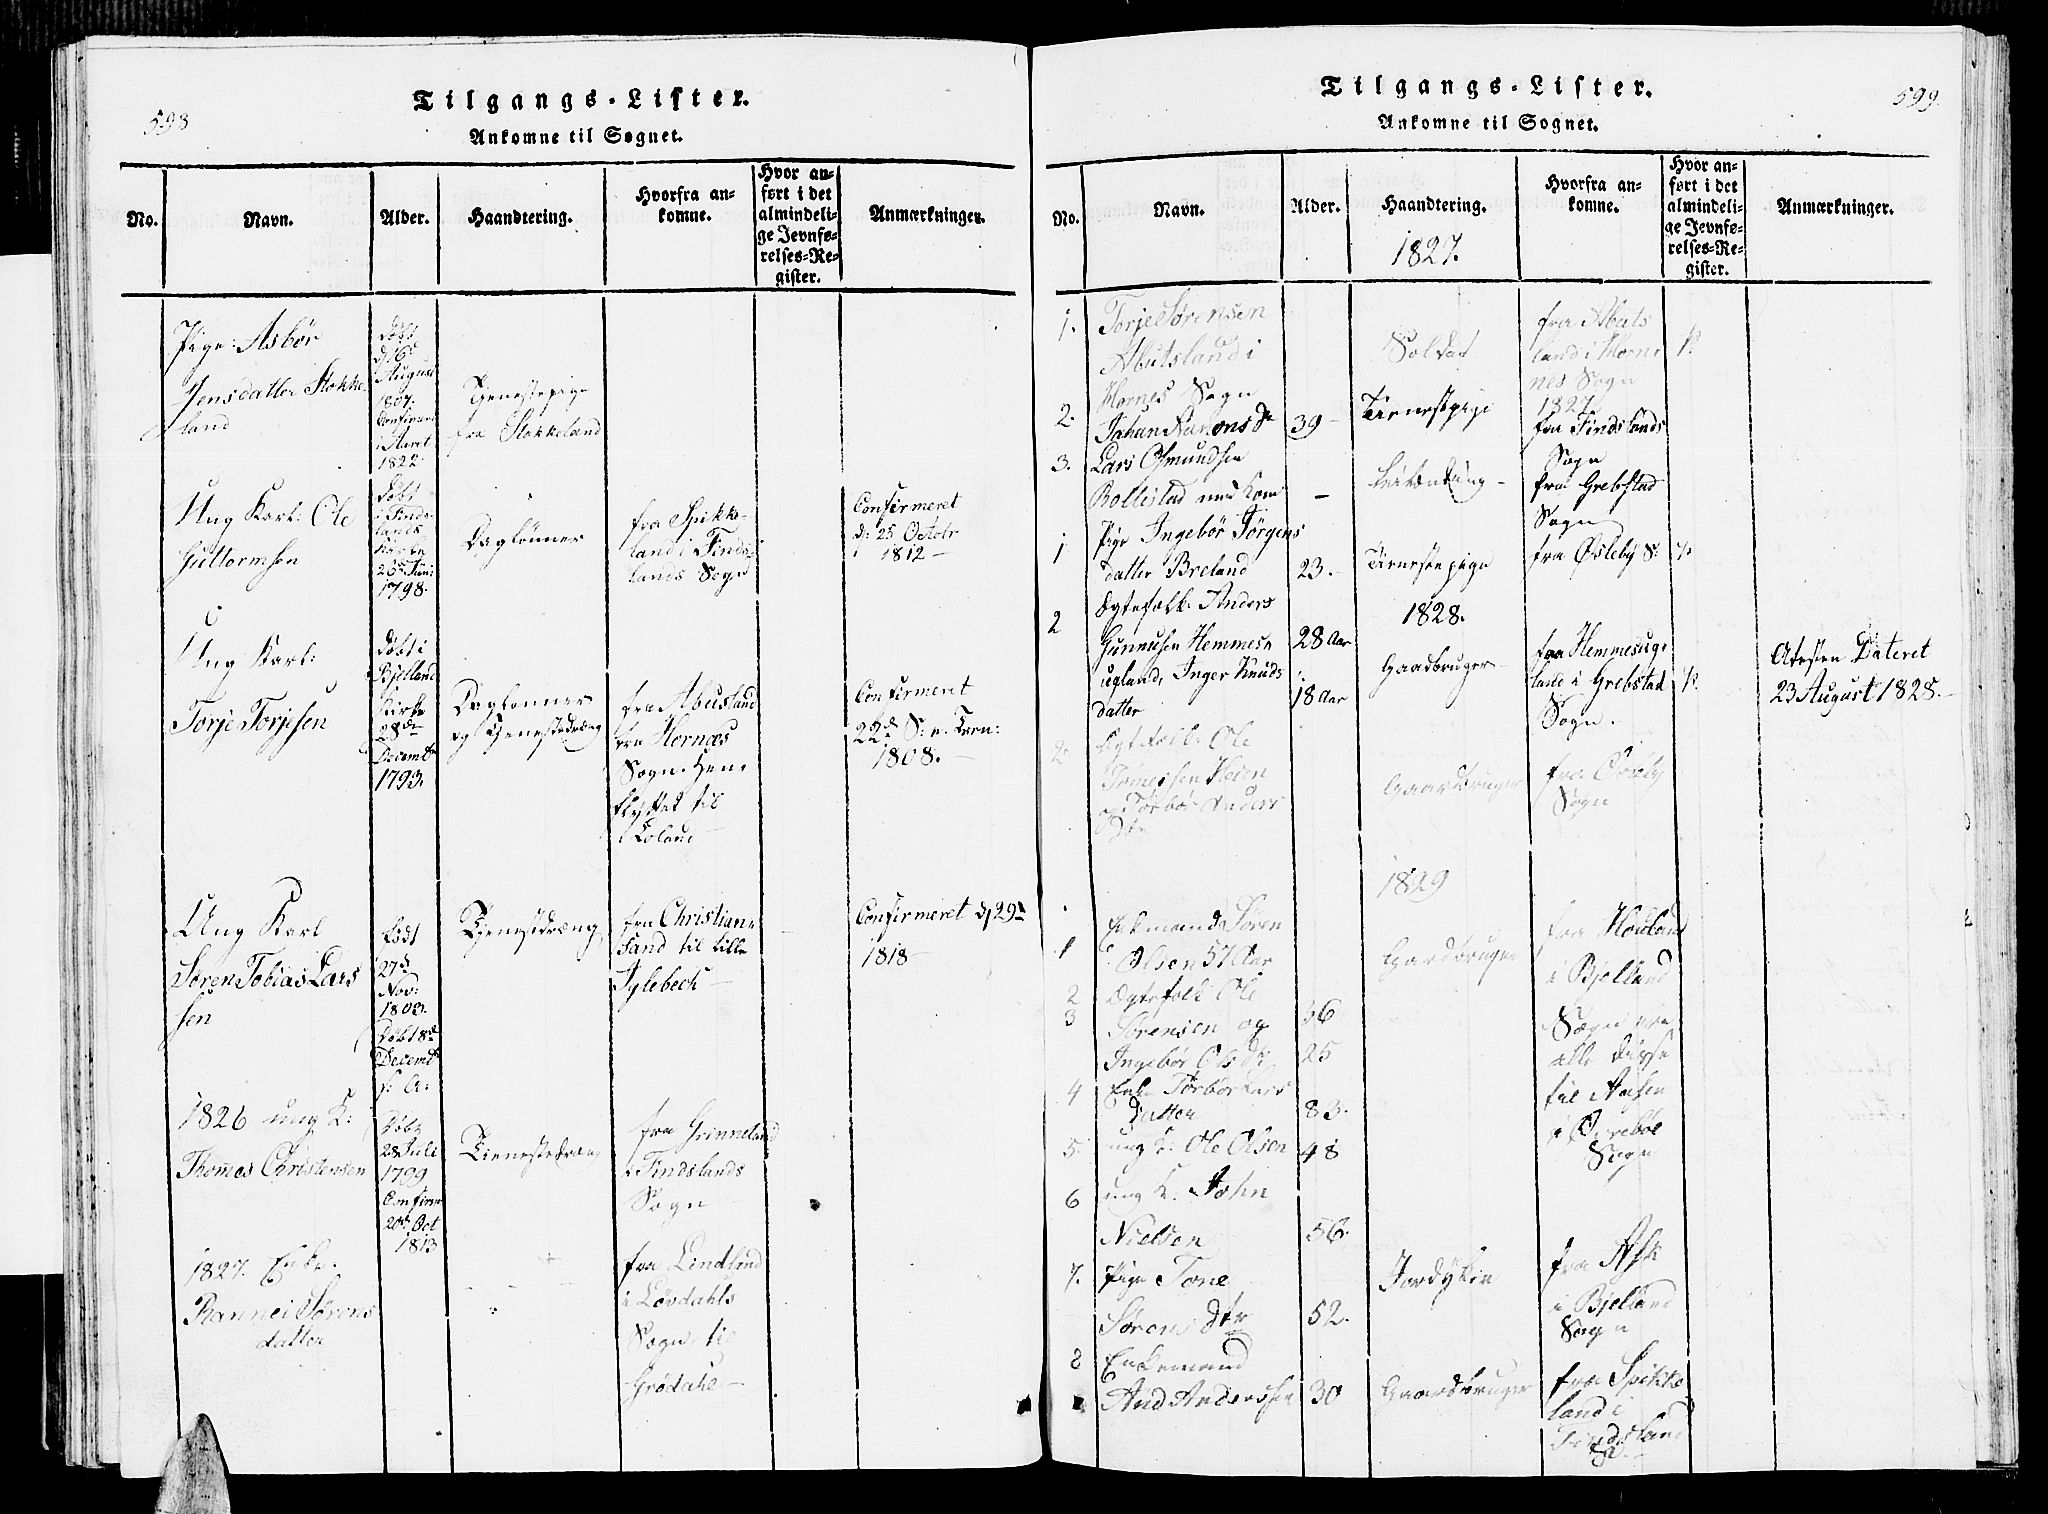 598
Tilgangs-Lister.
Ankomne til Sognet.
No.
Navn.
Alder.
Haandtering.
Hvorfra an-
komne.
Hvor an-
ført i det
almindeli-
ge Jevnfø-
relses-Re-
gister.
Anmærkninger.
Pige: Asbør
Jensdatter Stokke
land
Døbt
d/16d
August
1807.
Confirmeret
i Aaret
1822.
Tjenestepige
fra Stokkeland
Ung Karl: Ole
Guttormsen
Døbt
i Finds-
lands
Kirke
25 Juni
1798.
Daglønner
fra Spikke-
land i Finds-
lands Sogn
Confirmeret
d: 25 Octobr
1812 —
Ung Karl:
Torje Torjesen
Døbt i
Bjelland
Kirke
28de
Decembr
1793.
Daglønner
og Tjenestedreng
fra Abusland
fra Hornæs
Sogn. Hen
flyttet til
Loland
Confirmeret
22d S: e. Tren:
1808. —
Ung Karl
Søren Tobias Lars
sen
født
27d
Nov:
1803.
Døbt 8d
Decemb
s: A:
Tjenestdreng
fra Christian-
sand til lille
Jglebech —
Confirmeret d/29d
1818 —
1826 ung K:
Thomes Christensen
Døbt
28 Juli
1799
Confirm
20de Oct
1813
Tienestedreng
fra Grinneland
i Findslands
Sogn
1827. Enke.
Rannei Sørens
datter
fra Lindland
i Løvdahls
Sogn, til
Grødahl —
599.
Tilgangs-Lister.
Ankomne til Sognet.
No.
Navn.
Alder.
Haandtering.
Hvorfra an-
komne.
Hvor an-
ført i det
almindeli-
ge Jevnfø-
relses-Re-
gister.
Anmærkninger.
1827.
1.
Torje Sørensen
Abutsland i
Hornes Sogn
Soldat
fra Abuts
land i Horne
nes Sogn
1827
2.
Johan Aanons Dr
39 -
Tienestpige
fra Findslands
Sogn
3.
Lars Osmundsen
Rollistad med Kone
—
fra Grebstad
Sogn
1
Pige Ingebør Jørgens
datter Breland
23.
Tienestepige
fra Øsleby S:
1828.
2
Ægtefolk. Anders
Gunnusen Hemmesn
ugland, Inger Knuds
datter
28 Aar
18 Aar
Gaardbruger
fra Hemmesug-
land i Grebstad
Sogn.
Atesten Dateret
23 August 1828. —
2.
Egtefolk. Ole
Tomessen
og Torbør Anders
Dtr
Gaardbruger
fra Øsleby
Sogn
1829
1
Enkemand Søren
Olsen 57 Aar
Gardbruger
fra Houland
i Bjelland
Sogn ere
alle disse
til Aasen
i Øvrebøe
Sogn
2
Ægtefolk Ole
3
Sørensen og
36
Ingebør Ols Dr
25
4
Enke Torbor Lars
Datter
83.
5.
ung K: Ole Olsen
48
6
ung K. John
Nielsen
56.
7.
Pige Tone
Sørens Dtr
52.
fra Ask
i Bjelland
Sogn
8
Enkemand
And Anderssen
30
Gaardbruger
fra Spikke
land i
Findsland
S. —